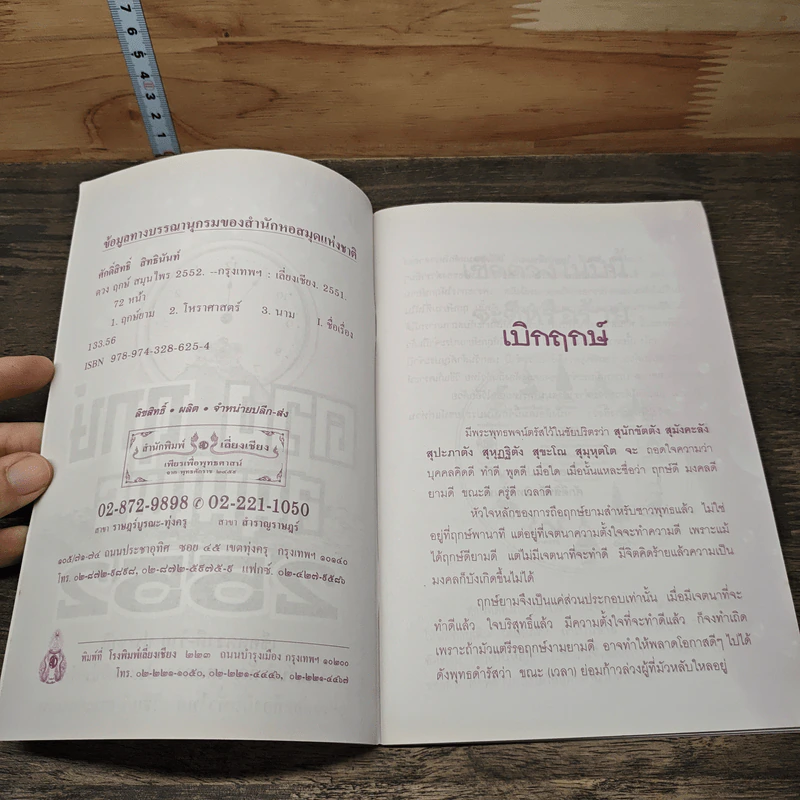 7
6
5
4
3
2
1
ข้อมูลทางบรรณานุกรมของสำนักหอสมุดแห่งชาติ
ศักดิ์สิทธิ์ สิทธินันท์
ดวง ฤกษ์ สมุนไพร 2552. –กรุงเทพฯ : เลี่ยงเชียง, 2551.
72 หน้า
1. ฤกษ์ยาม 2. โหราศาสตร์ 3. นาม I. ชื่อเรื่อง
133.56
ISBN 978-974-328-625-4
ลิขสิทธิ์ • ผลิต • จำหน่ายปลีก-ส่ง
สำนักพิมพ์ เลี่ยงเชียง
เพียรเพื่อพุทธศาสน์
02-872-9898 ✆ 02-221-1050
สาขา ราษฎร์บูรณะ-ทุ่งครุ สาขา สำราญราษฎร์
๑๐๕/๗๑-๗๔ ถนนประชาอุทิศ ซอย ๔๕ เขตทุ่งครุ กรุงเทพฯ ๑๐๑๔๐
โทร. ๐๒-๘๗๒-๙๘๙๘, ๐๒-๘๗๒-๕๙๗๕-๙ แฟกซ์. ๐๒-๔๒๗-๙๕๘๖
พิมพ์ที่ โรงพิมพ์เลี่ยงเชียง ๒๒๓ ถนนบำรุงเมือง กรุงเทพฯ ๑๐๒๐๐
โทร. ๐๒-๒๒๑-๑๐๕๐, ๐๒-๒๒๑-๔๔๔๖, ๐๒-๒๒๑-๔๔๖๘
เบิกฤกษ์
มีพระพุทธพจน์ตรัสไว้ในชัยปริตรว่า สุนักขัตตัง สุมังคะลัง
สุปะภาตัง สุหุฏฐิตัง สุขะโณ สุมุหุตโต จะ ถอดใจความว่า
บุคคลคิดดี ทำดี พูดดี เมื่อใด เมื่อนั้นแหละชื่อว่า ฤกษ์ดี มงคลดี
ยามดี ขณะดี ครู่ดี เวลาดี
หัวใจหลักของการถือฤกษ์ยามสำหรับชาวพุทธแล้ว ไม่ใช่
อยู่ที่ฤกษ์พานาที แต่อยู่ที่เจตนาความตั้งใจจะทำความดี เพราะแม้
ได้ฤกษ์ดียามดี แต่ไม่มีเจตนาที่จะทำดี มีจิตคิดร้ายแล้วความเป็น
มงคลก็บังเกิดขึ้นไม่ได้
ฤกษ์ยามจึงเป็นแค่ส่วนประกอบเท่านั้น เมื่อมีเจตนาที่จะ
ทำดีแล้ว ใจบริสุทธิ์แล้ว มีความตั้งใจที่จะทำดีแล้ว ก็จงทำเถิด
เพราะถ้ามัวแต่รีรอฤกษ์งามยามดี อาจทำให้พลาดโอกาสดีๆ ไปได้
ดังพุทธดำรัสว่า ขณะ (เวลา) ย่อมก้าวล่วงผู้ที่มัวหลับใหลอยู่